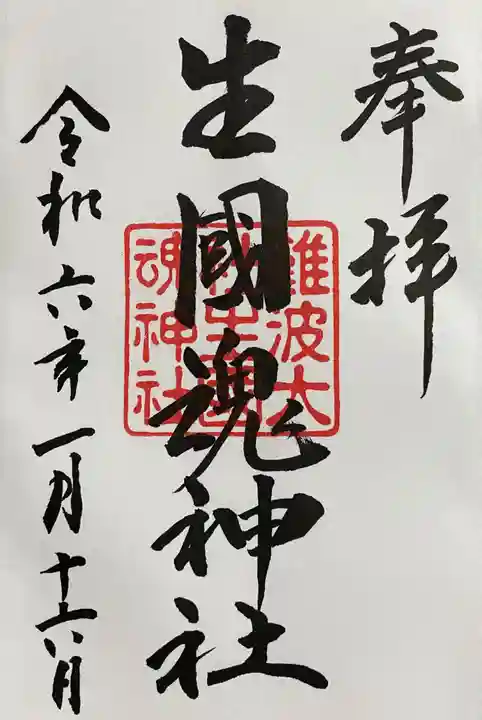 奉拝
生國魂神社
難波大
社生國
魂神社
令和六年一月十六日